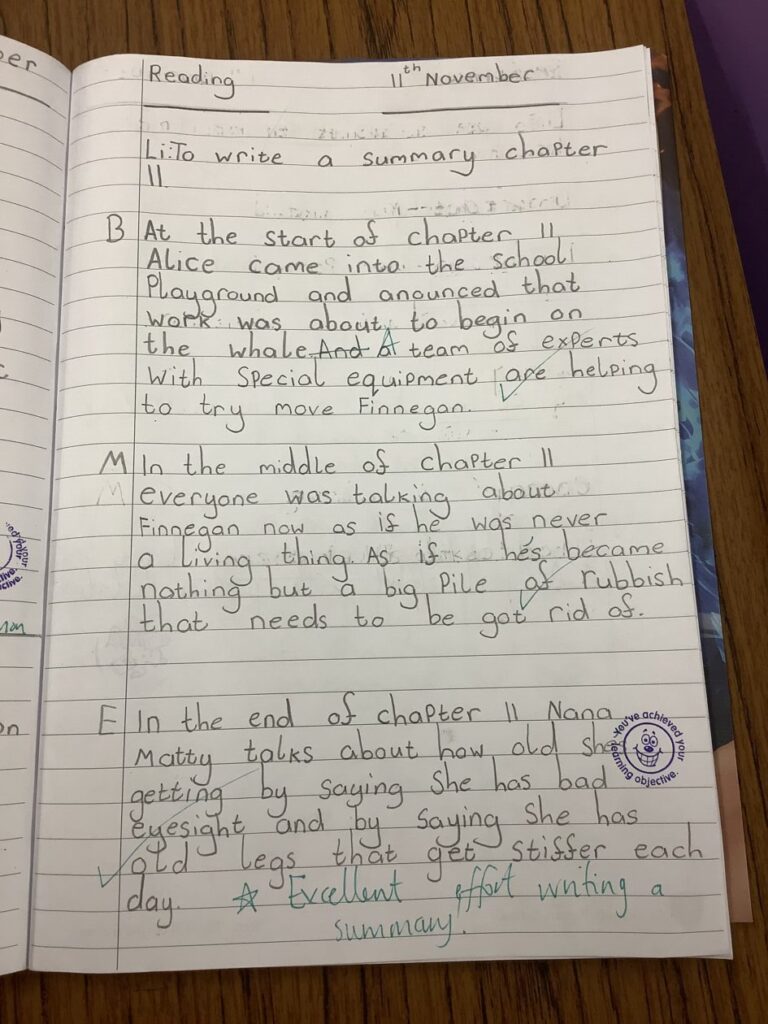 Reading 11th November
Li:To write a summary chapter
11.
B At the start of chapter 11
Alice came into the school
Playground and anounced that
work was about to begin on
the whale. And A team of experts
with special equipment are helping
to try move Finnegan.
M In the middle of chapter 11
M everyone was talking about
Finnegan now as if he was never
a living thing. As if he's became
nothing but a big Pile of rubbish
that needs to be got rid of.
E In the end of chapter 11 Nana
Matty talks about how old she
getting by saying she has bad
eyesight and by saying she has
old legs that get stiffer each
day.
You've achieved your
learning objective.
Excellent effort writing a
summary!